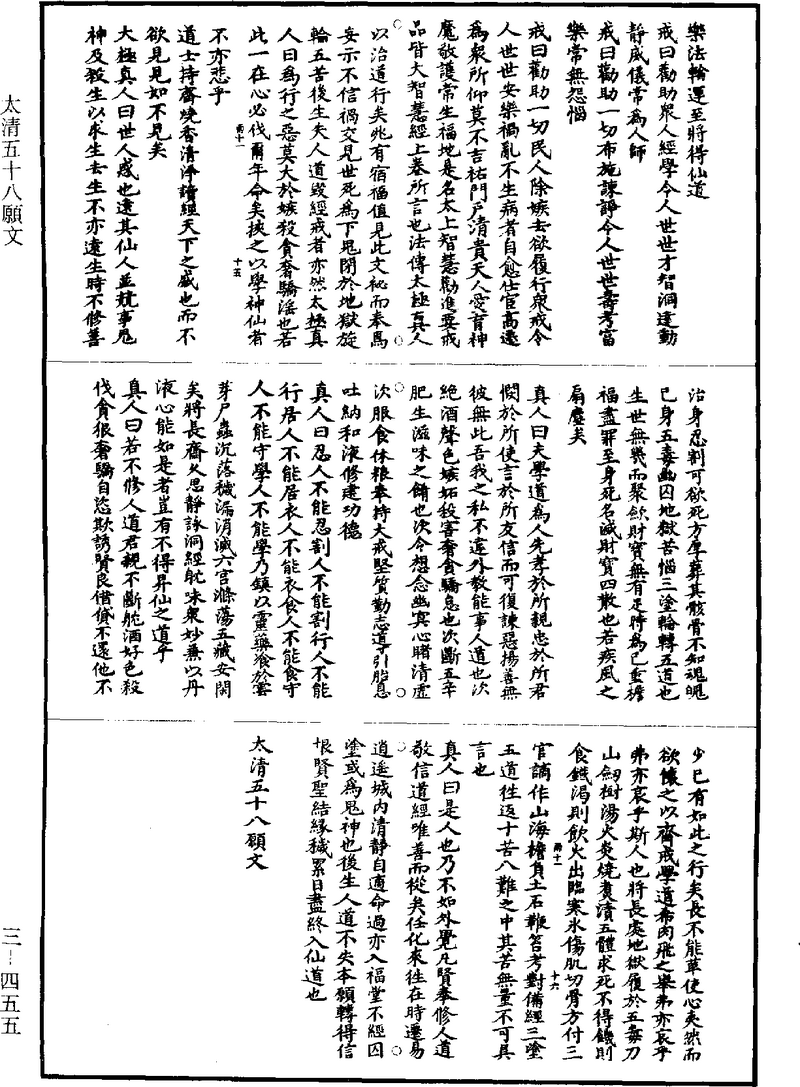 樂法輪運至將得仙道
戒曰勸助眾人經學令人世世才智洞達動
靜威儀常為人師
戒曰勸助一切布施諫諍令人世世壽考富
樂常無怨惱
戒曰勸助一切民人除嫉去欲履行眾戒令
人世世安樂禍亂不生病者自愈仕官高遷
為眾所仰莫不吉祐門戶清貴天人愛育神
魔敬護常生福地是名太上智慧勸進要戒
品皆大智慧經上卷所言也法傳太極真人
以治道行矣兆有宿福值見此文祕而奉焉
妄示不信禍交見世死為下鬼閉於地獄旋
輪五苦後生失人道毀經戒者亦然太極真
人曰為行之惡莫大於嫉殺貪奢驕淫也若
此一在心必伐爾年命矣挾之以學神仙者
不亦悲乎
道士持齋燒香清淨讀經天下之盛也而不
欲見見如不見矣
大極真人曰世人惑也遠其仙人並競事鬼
神及殺生以求生去生不亦遠生時不修善
治身忍割可欲死方厚葬其骸骨不知魂魄
已身五毒幽囚地獄苦惱三塗輪轉五道也
生世無幾而聚斂財寶無有足時為已重擔
福盡罪至身死名滅財寶四散也若疾風之
扇塵矣
真人曰夫學道為人先孝於所親忠於所君
憫於所使言於所友信而可復諫惡揚善無
彼無此吾我之私不違外教能事人道也次
絕酒聲色嫉妬殺害奢貪驕恣也次斷五辛
肥生滋味之餚也次令想念幽冥心睹清虛
次服食休粮奉持大戒堅質勤志導引胎息
吐納和液修建功德
真人曰忍人不能忍割人不能割行人不能
行居人不能居衣人不能衣食人不能食守
人不能守學人不能學乃鎮以靈藥飡於雲
芽尸蟲沉落穢漏消滅六宮滌蕩五藏安閑
矣將長齋久思靜詠洞經耽味眾妙兼以丹
液心能如是者豈有不得昇仙之道乎
真人曰若不修人道君親不斷耽酒好色殺
伐貪狠奢驕自恣欺誘賢良借貸不還他不
少已有如此之行矣長不能革使心爽然而
欲懷之以齋戒學道希肉飛之舉弗亦哀乎
弗亦哀乎斯人也將長處地獄履於五毒刀
山劒樹湯火炎燒煑漬五體求死不得饑則
食鐵渴則飲火出臨寒氷傷肌切骨方付三
官謫作山海擔負土石鞭笞考對備經三塗
五道往返十苦八難之中其苦無量不可具
言也
真人曰是人也乃不如外覺凡賢奉修人道
敬信道經唯善而從矣任化來往在時遷易
逍遥城內清靜自適命過亦入福堂不經囚
塗或為鬼神也後生人道不失本願轉得信
根賢聖結緣穢累日盡終入仙道也
太清五十八願文
第十一
十五
第十一
十六
太清五十八願文
三—四五五